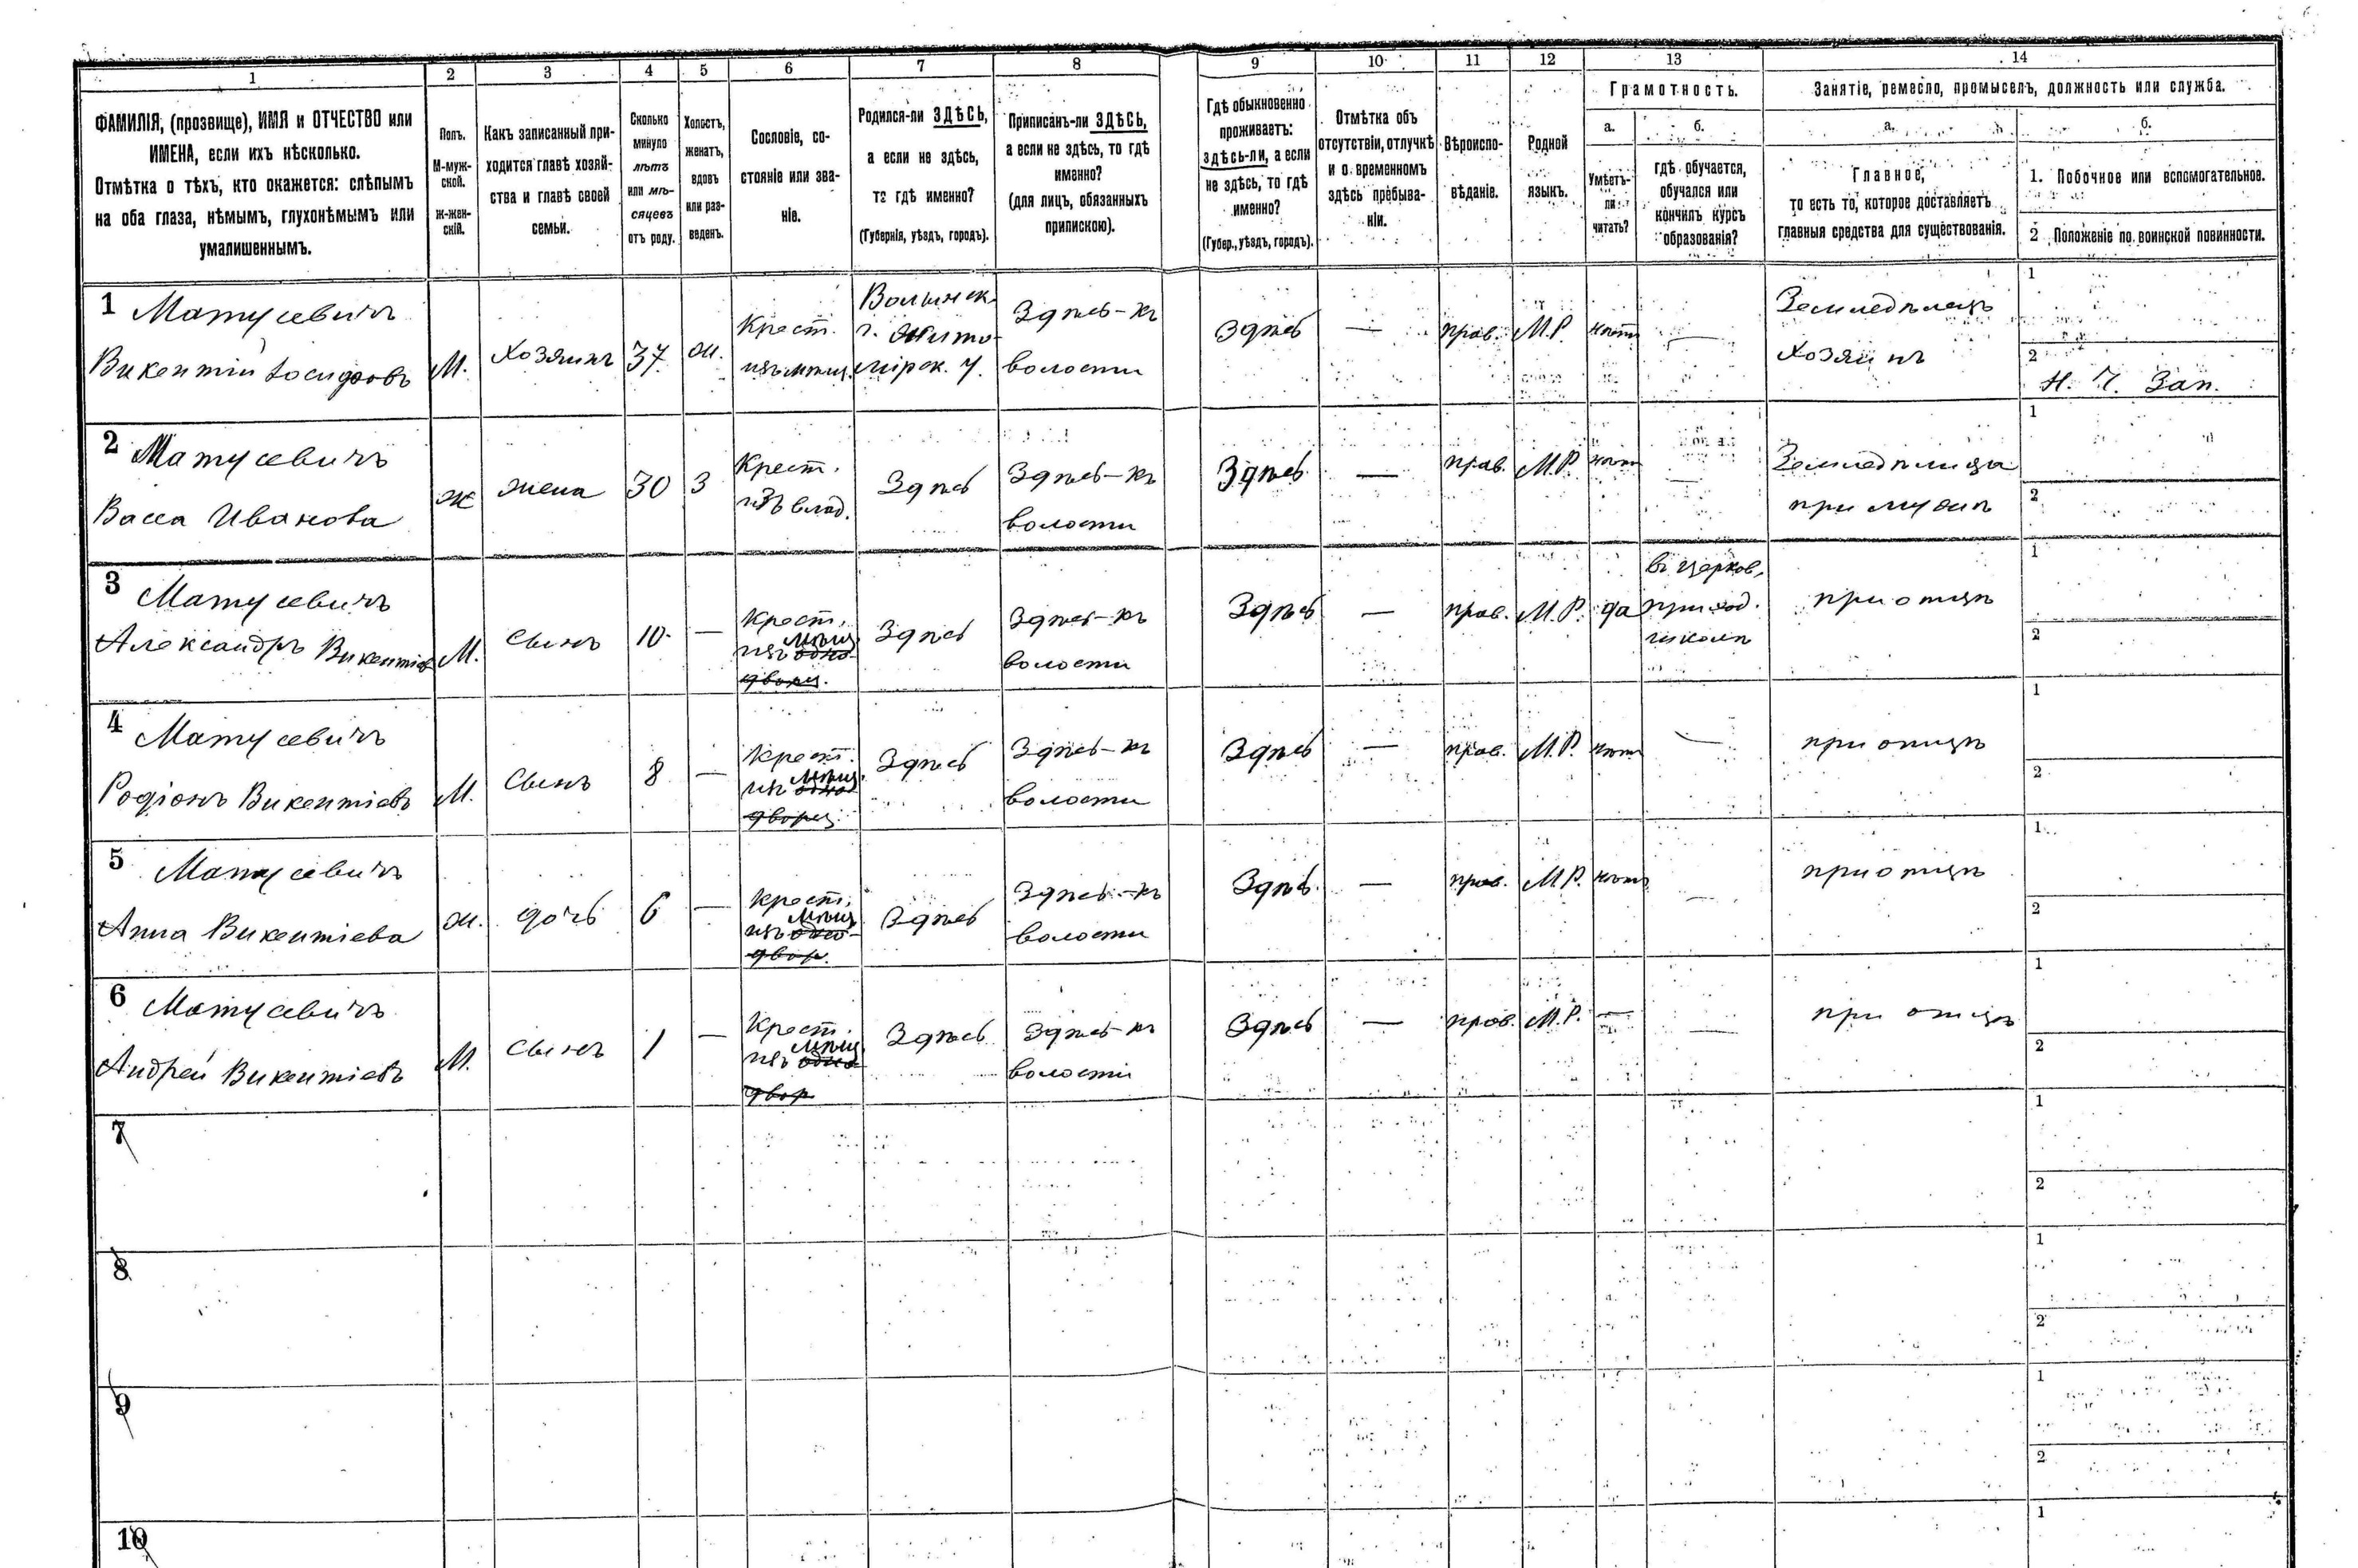 1 2 3 4 5 6 7 8 9 10 11 12 13 14
ФАМИЛІЯ, (прозвище), ИМЯ и ОТЧЕСТВО или
ИМЕНА, если ихъ нѣсколько.
Отмѣтка о тѣхъ, кто окажется: слѣпымъ
на оба глаза, нѣмымъ, глухонѣмымъ или
умалишеннымъ.
Полъ.
М-муж-
ской.
ж-жен-
скій.
Какъ записанный при-
ходится главѣ хозяй-
ства и главѣ своей
семьи.
Сколько
минуло
лѣтъ
или мѣ-
сяцевъ
отъ роду.
Холостъ,
женатъ,
вдовъ
или раз-
веденъ.
Сословіе, со-
стояніе или зва-
ніе.
Родился-ли ЗДѢСЬ,
а если не здѣсь,
то гдѣ именно?
(Губернія, уѣздъ, городъ).
Приписанъ-ли ЗДѢСЬ,
а если не здѣсь, то гдѣ
именно?
(для лицъ, обязанныхъ
припискою).
Гдѣ обыкновенно
проживаетъ:
здѣсь-ли, а если
не здѣсь, то гдѣ
именно?
(Губер., уѣздъ, городъ).
Отмѣтка объ
отсутствіи, отлучкѣ
и о временномъ
здѣсь пребыва-
ніи.
Вѣроиспо-
вѣданіе.
Родной
языкъ.
Грамотность.
а.
Умѣетъ-
ли
читать?
б.
гдѣ обучается,
обучался или
кончилъ курсъ
образованія?
Занятіе, ремесло, промыселъ, должность или служба.
а.
Главное,
то есть то, которое доставляетъ
главныя средства для существованія.
б.
1. Побочное или вспомогательное.
2 Положеніе по воинской повинности.
1 Матусевичъ
Викентій Іосифовъ
М.
Хозяинъ
37
ж.
Крест.
изъ мѣщ.
Волынск.
г. Жито-
мірск. у.
Здѣсь-къ
волости
Здѣсь
—
прав.
М.Р.
нѣтъ
—
Земледѣлецъ
хозяинъ
1
2
Н. Ч. Зап.
2 Матусевичъ
Васса Иванова
ж
жена
30
З
Крест.
изъ влад.
Здѣсь
Здѣсь-къ
волости
Здѣсь
—
прав.
М.Р.
нѣтъ
—
Земледѣлица
при мужѣ
1
2
3 Матусевичъ
Александръ Викентіев
М.
сынъ
10
—
Крест.
мѣщ.
изъ одно-
дворц.
Здѣсь
Здѣсь-къ
волости
Здѣсь
—
прав.
М.Р.
да
въ церков.
приход.
школѣ
при отцѣ
1
2
4 Матусевичъ
Родіонъ Викентіевъ
М.
сынъ
8
—
Крест.
мѣщ.
изъ одно-
дворц.
Здѣсь
Здѣсь-къ
волости
Здѣсь
—
прав.
М.Р.
нѣтъ
—
при отцѣ
1
2
5 Матусевичъ
Анна Викентіева
ж.
дочь
6
—
Крест.
мѣщ.
изъ одно-
двор.
Здѣсь
Здѣсь-къ
волости
Здѣсь
—
прав.
М.Р.
нѣтъ
—
при отцѣ
1
2
6 Матусевичъ
Андрей Викентіевъ
М.
сынъ
1
—
Крест.
мѣщ.
изъ одно-
двор
Здѣсь
Здѣсь-къ
волости
Здѣсь
—
прав.
М.Р.
—
—
при отцѣ
1
2
7
1
2
8
1
2
9
1
2
10
1